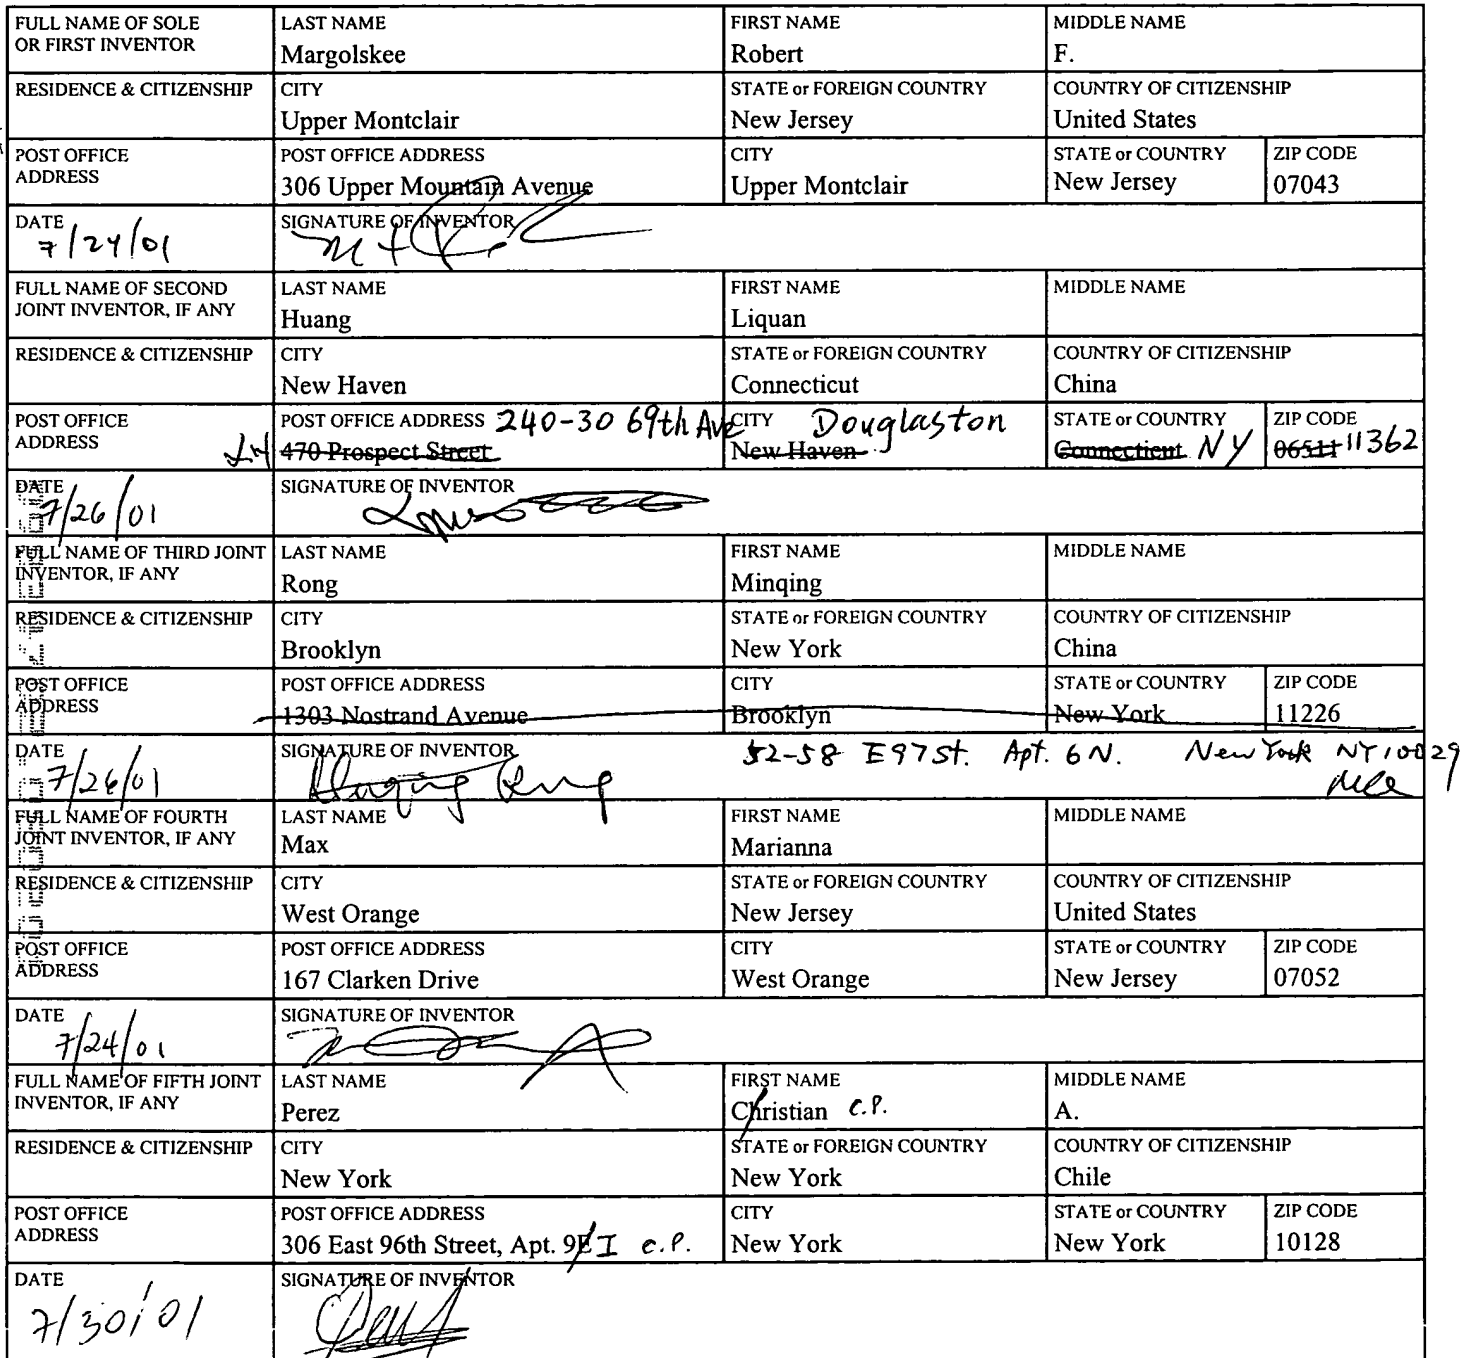 FULL NAME OF SOLE OR FIRST INVENTOR
LAST NAME Margolskee
FIRST NAME Robert
MIDDLE NAME F.
RESIDENCE & CITIZENSHIP
CITY Upper Montclair
STATE or FOREIGN COUNTRY New Jersey
COUNTRY OF CITIZENSHIP United States
POST OFFICE ADDRESS
POST OFFICE ADDRESS 306 Upper Mountain Avenue
CITY Upper Montclair
STATE or COUNTRY New Jersey
ZIP CODE 07043
DATE 7/24/01
SIGNATURE OF INVENTOR
FULL NAME OF SECOND JOINT INVENTOR, IF ANY
LAST NAME Huang
FIRST NAME Liquan
MIDDLE NAME
RESIDENCE & CITIZENSHIP
CITY New Haven
STATE or FOREIGN COUNTRY Connecticut
COUNTRY OF CITIZENSHIP China
POST OFFICE ADDRESS LH
POST OFFICE ADDRESS 240-30 69th Ave
470 Prospect Street
CITY Douglaston
New Haven
STATE or COUNTRY
Connecticut NY
ZIP CODE
06511 11362
DATE 7/26/01
SIGNATURE OF INVENTOR
FULL NAME OF THIRD JOINT INVENTOR, IF ANY
LAST NAME Rong
FIRST NAME Minqing
MIDDLE NAME
RESIDENCE & CITIZENSHIP
CITY Brooklyn
STATE or FOREIGN COUNTRY New York
COUNTRY OF CITIZENSHIP China
POST OFFICE ADDRESS
POST OFFICE ADDRESS 1303 Nostrand Avenue
CITY Brooklyn
STATE or COUNTRY New York
ZIP CODE 11226
DATE 7/26/01
SIGNATURE OF INVENTOR Minqing Rong
52-58 E97St. Apt. 6N. New York NY 10029
FULL NAME OF FOURTH JOINT INVENTOR, IF ANY
LAST NAME Max
FIRST NAME Marianna
MIDDLE NAME
RESIDENCE & CITIZENSHIP
CITY West Orange
STATE or FOREIGN COUNTRY New Jersey
COUNTRY OF CITIZENSHIP United States
POST OFFICE ADDRESS
POST OFFICE ADDRESS 167 Clarken Drive
CITY West Orange
STATE or COUNTRY New Jersey
ZIP CODE 07052
DATE 7/24/01
SIGNATURE OF INVENTOR
FULL NAME OF FIFTH JOINT INVENTOR, IF ANY
LAST NAME Perez
FIRST NAME Christian C.P.
MIDDLE NAME A.
RESIDENCE & CITIZENSHIP
CITY New York
STATE or FOREIGN COUNTRY New York
COUNTRY OF CITIZENSHIP Chile
POST OFFICE ADDRESS
POST OFFICE ADDRESS 306 East 96th Street, Apt. 9E I C.P.
CITY New York
STATE or COUNTRY New York
ZIP CODE 10128
DATE 7/30/01
SIGNATURE OF INVENTOR